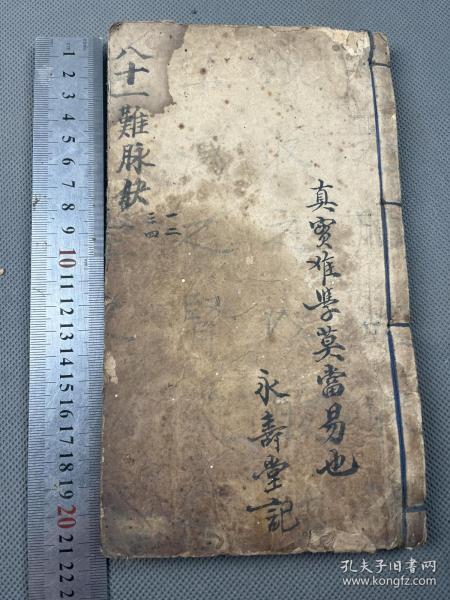 八十一難脉缺
一二
三四
真實难學莫當易也
永壽堂記
1
2
3
4
5
6
7
8
9
10
11
12
13
14
15
16
17
18
19
20
21
22
2
孔夫子旧书网
www.kongfz.com